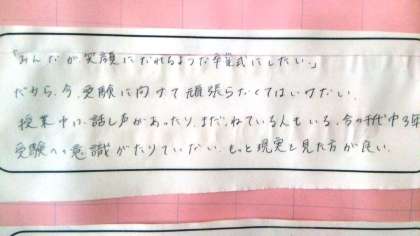 「みんなが笑顔になれるような卒業式にしたい。」
だから、今、受験に向けて頑張らなくてはいけない。
授業中に話し声があったり、まだねている人もいる。今の千代中3年
受験への意識がたりていない。もっと現実と見た方が良い。